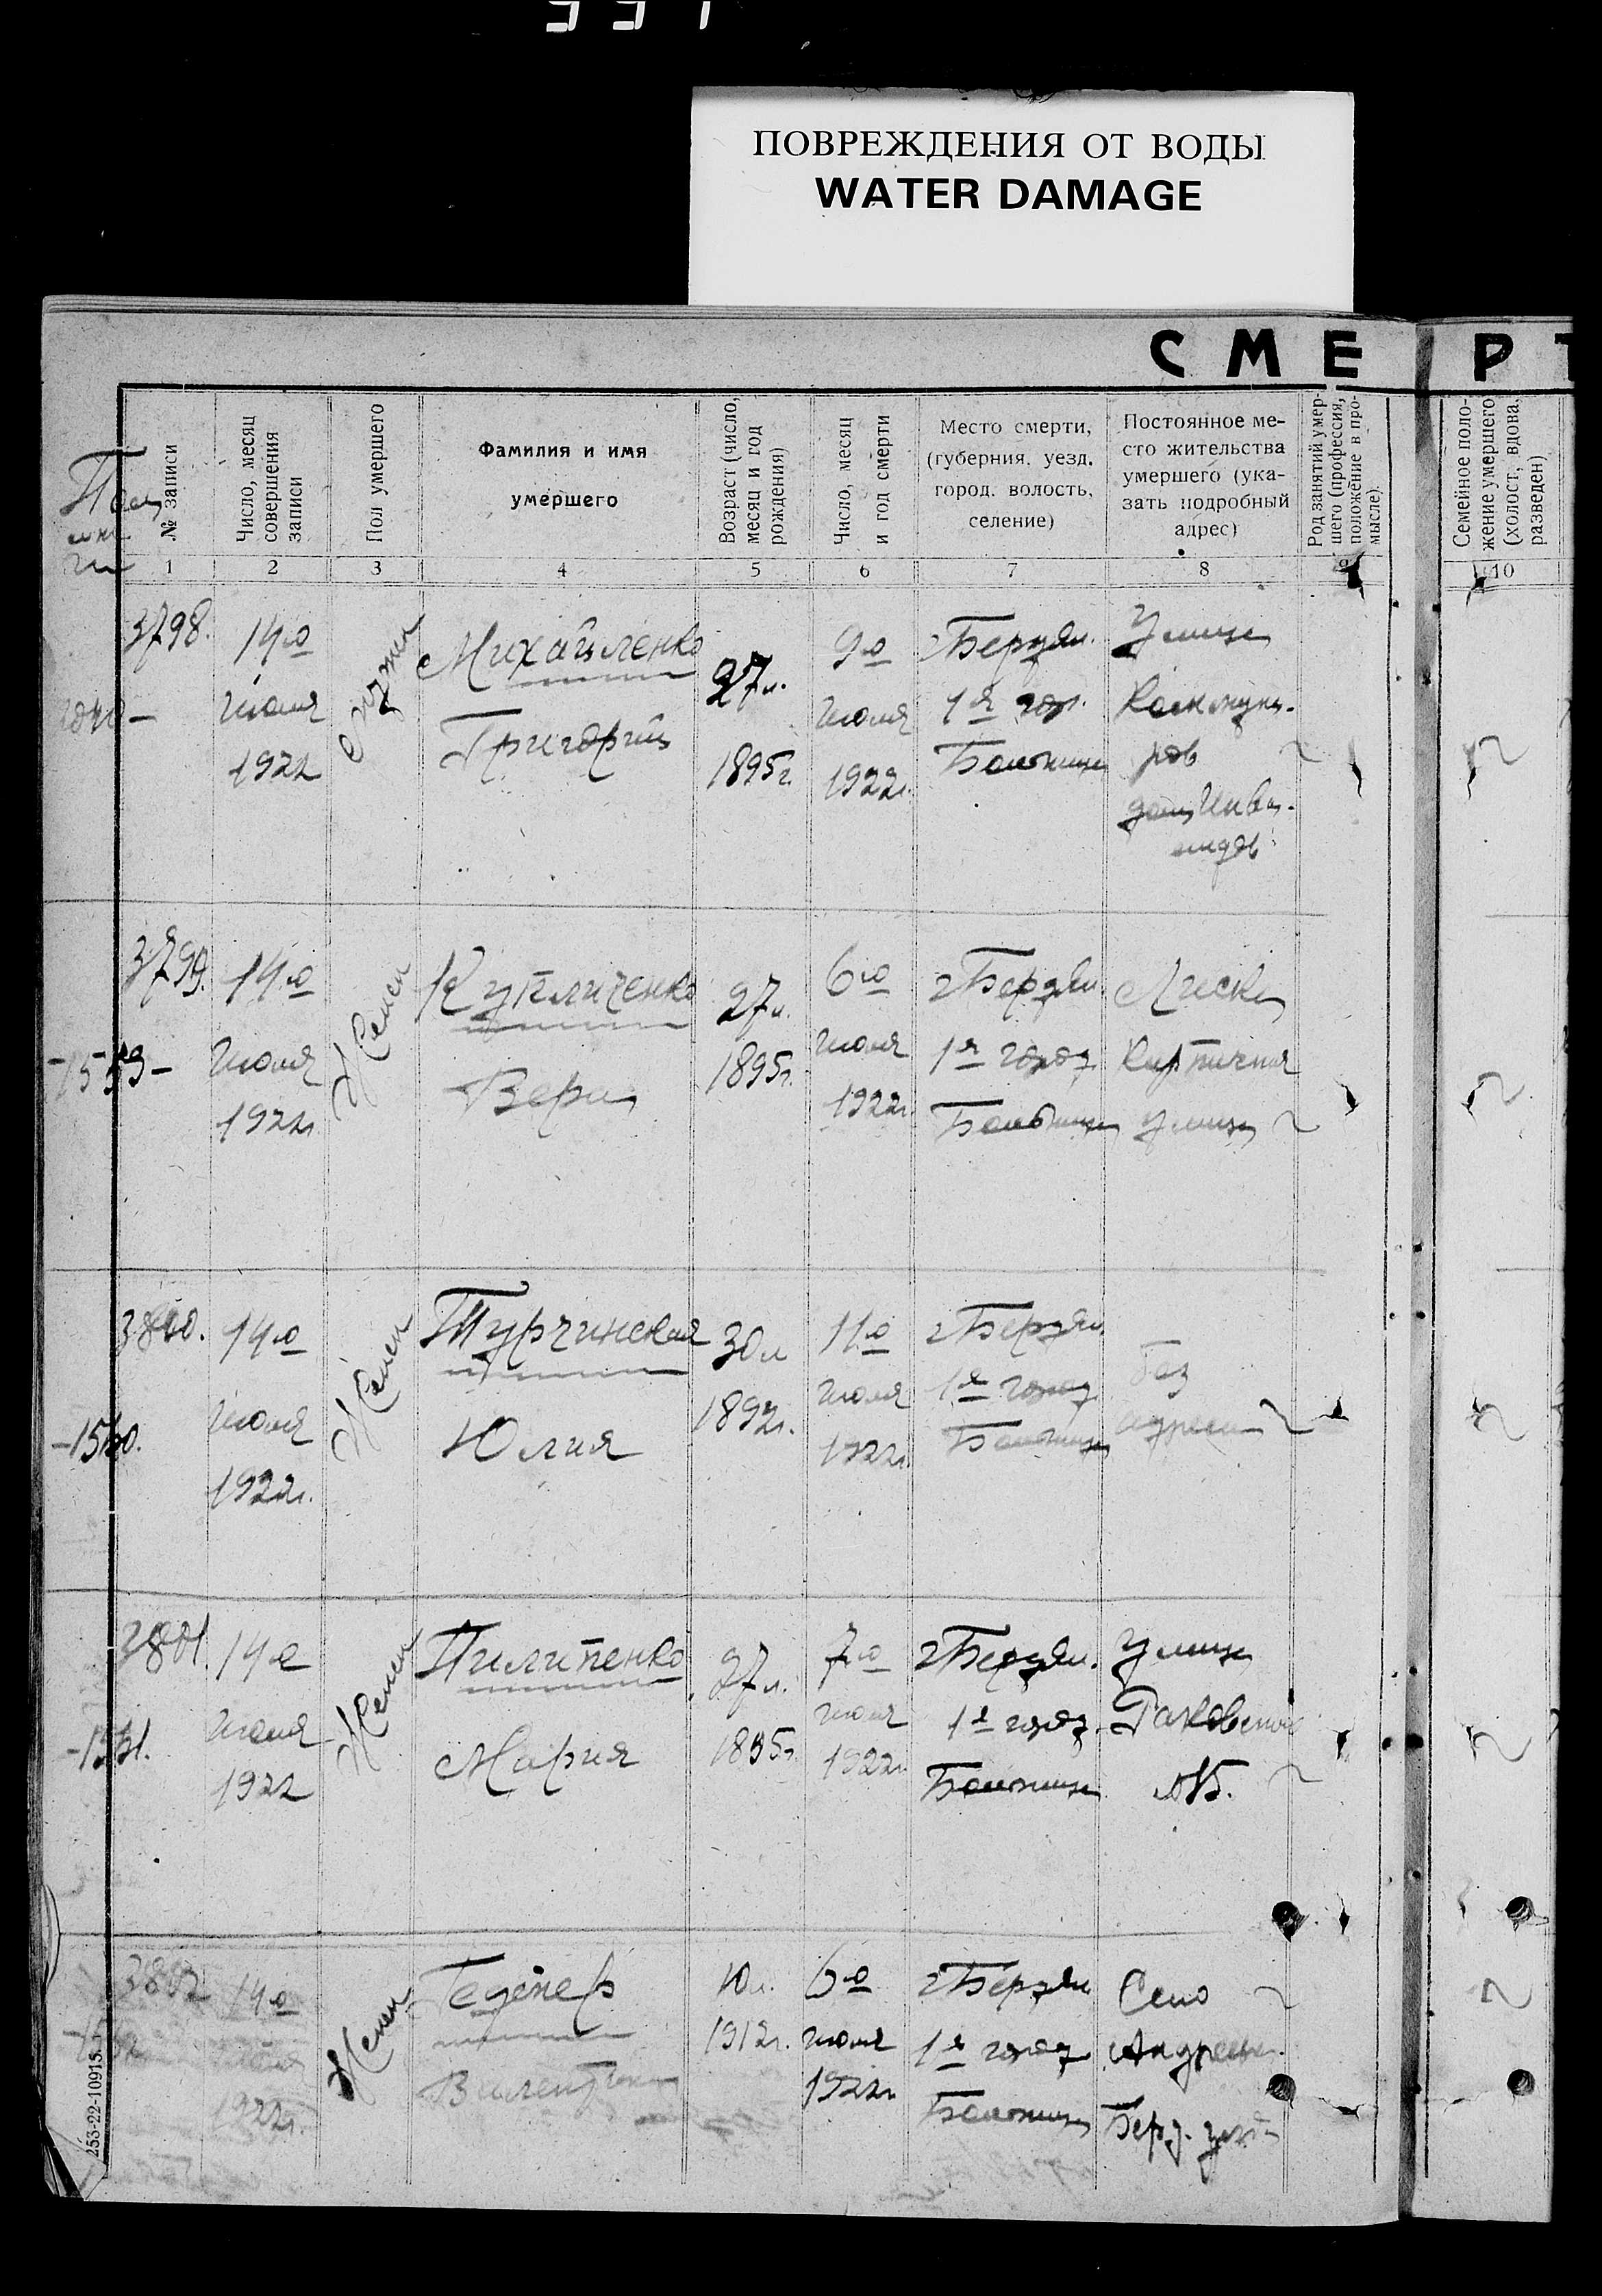 ПОВРЕЖДЕНИЯ ОТ ВОДЫ
WATER DAMAGE
СМЕ Р
№ записи
Число, месяц совершения записи
Пол умершего
Фамилия и имя
умершего
Возраст (число, месяц и год рождения)
Число, месяц и год смерти
Место смерти,
(губерния, уезд,
город, волость,
селение)
Постоянное ме-
сто жительства
умершего (ука-
зать подробный
адрес)
Род занятий умер-
шего (профессия,
положение в про-
мысле).
Семейное поло-
жение умершего
(холост, вдова,
разведен)
1 2 3 4 5 6 7 8 9 10
3798.
14го
июля
1922
Мужск
Михайленко
Григорий
27л.
1895г
9го
июля
1922г.
г Бердян.
1я гор.
Больница
Улица
Коммуна-
ров
дом Инва-
лидов
3799.
14го
июля
1922г.
Женск
Вера
27л.
1895г.
6го
июля
1922г.
г Бердян.
1я город
Больница
Лиски
Кирпичная
Улица
3800.
14го
июля
1922г.
Женск
Турчинская
Юлия
30л
1892г.
11го
июля
1922г.
г Бердян.
1я город
Больница
без
адреса
3801.
14го
июля
1922
Женск
Пилипенко
Мария
27л.
1895г.
7го
июля
1922г.
г Бердян.
1я город.
Больница
Улица
Раковского
3802
14го
июля
1922г.
Женск
Валентина
10л.
1912г.
6го
июля
1922г
г Бердян
1я город
Больница
Село
Андреев.
Берд. уезд
253-22-10915.